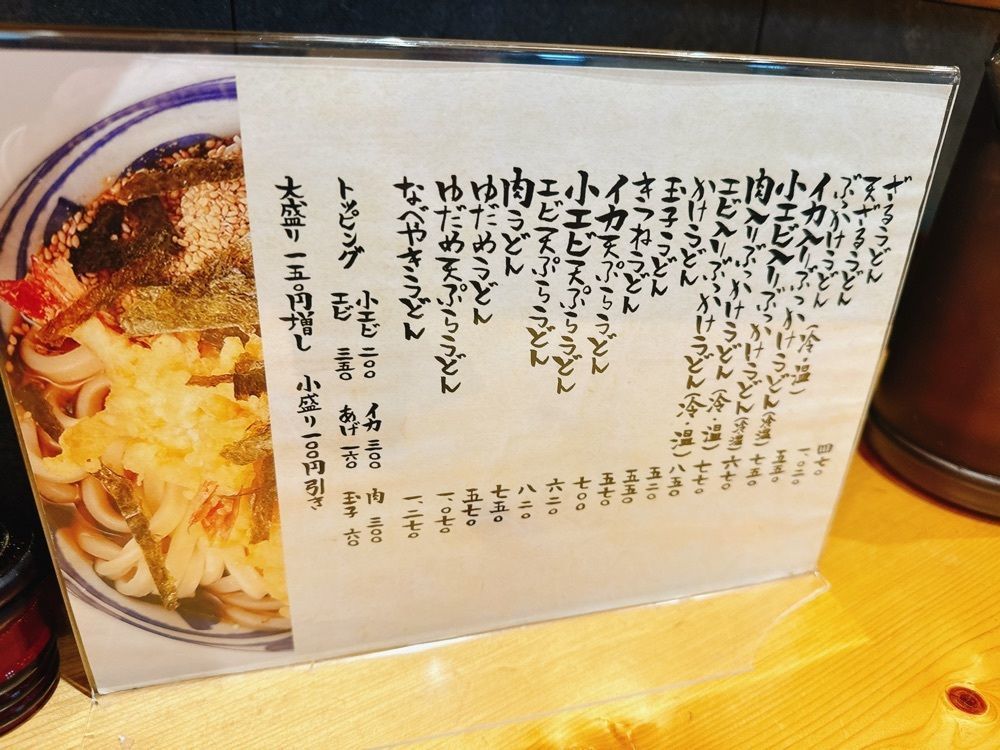 ざるうどん 四七〇
天ざるうどん 一、〇二〇
ぶっかけうどん(冷・温) 五五〇
イカ入りぶっかけうどん(冷温) 七五〇
小エビ入りぶっかけうどん(冷温) 六七〇
肉入りぶっかけうどん(冷・温) 七七〇
エビ入りぶっかけうどん(冷・温) 八五〇
かけうどん 五二〇
玉子うどん 五五〇
きつねうどん 五七〇
イカ天ぷらうどん 七〇〇
小エビ天ぷらうどん 六二〇
エビ天ぷらうどん 八二〇
肉うどん 七五〇
ゆだめうどん 五七〇
ゆだめ天ぷらうどん 一、〇七〇
なべやきうどん 一、二七〇
トッピング
小エビ 二〇〇 イカ 三〇〇 肉 三〇〇
エビ 三五〇 あげ 一六〇 玉子 六〇
大盛り 一五〇円増し 小盛り 一〇〇円引き